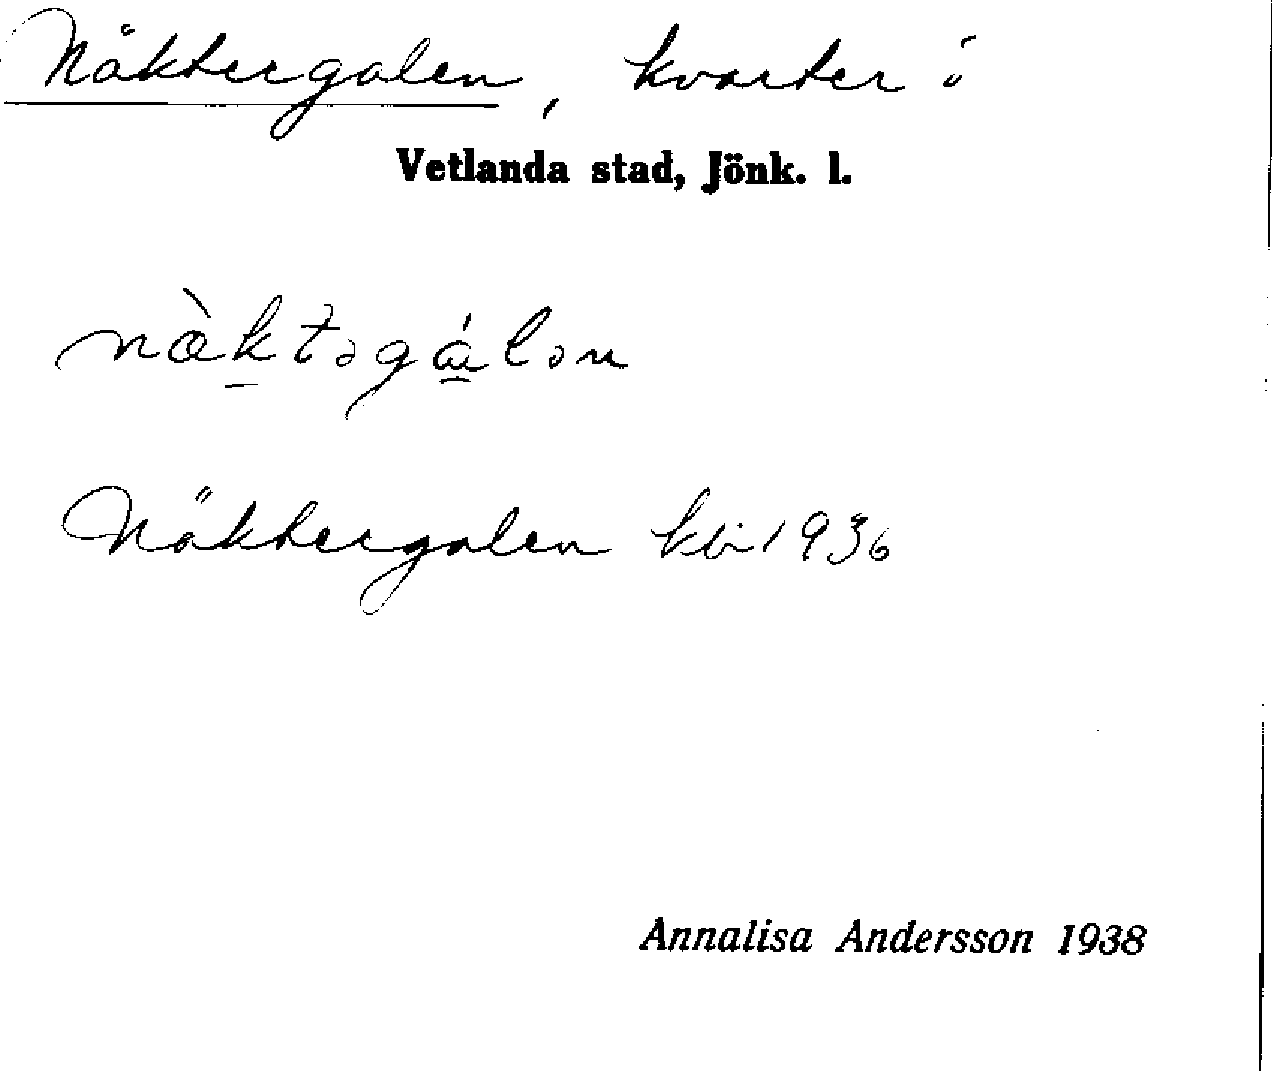 Näktergalen, kvarter i
Vetlanda stad, Jönk. l.
næ̀ktəgálən
Näktergalen kv 1936
Annalisa Andersson 1938